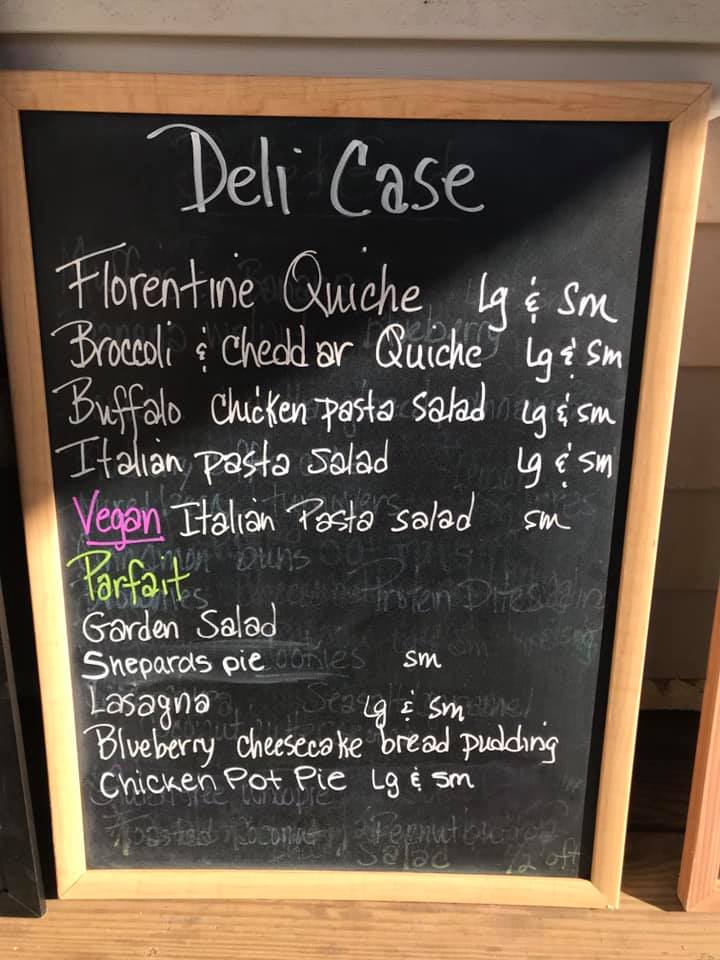 Deli Case
Florentine Quiche Lg & Sm
Broccoli & Cheddar Quiche Lg & Sm
Buffalo Chicken Pasta Salad Lg & Sm
Italian Pasta Salad Lg & Sm
Vegan Italian Pasta Salad Sm
Parfait
Garden Salad
Shepards pie sm
Lasagna Lg & Sm
Blueberry cheesecake bread pudding
Chicken Pot Pie Lg & Sm